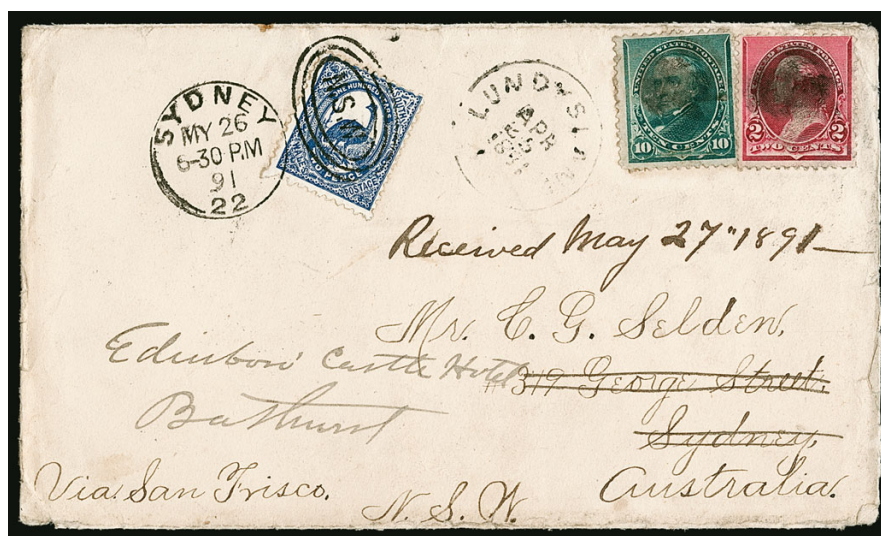 SYDNEY
MY 26
6-30 P.M
91
22
ONE HUNDRED YEARS
POSTAGE
NSW
LUNDYS LANE
APR
UNITED STATES POSTAGE
10 TEN CENTS 10
UNITED STATES POSTAGE
2 TWO CENTS 2
Received May 27" 1891—
Mr. C. G. Selden,
Edinboro' Castle Hotel
319 George Street.
Bathurst
Sydney,
Via San Frisco.
N. S. W.
Australia.